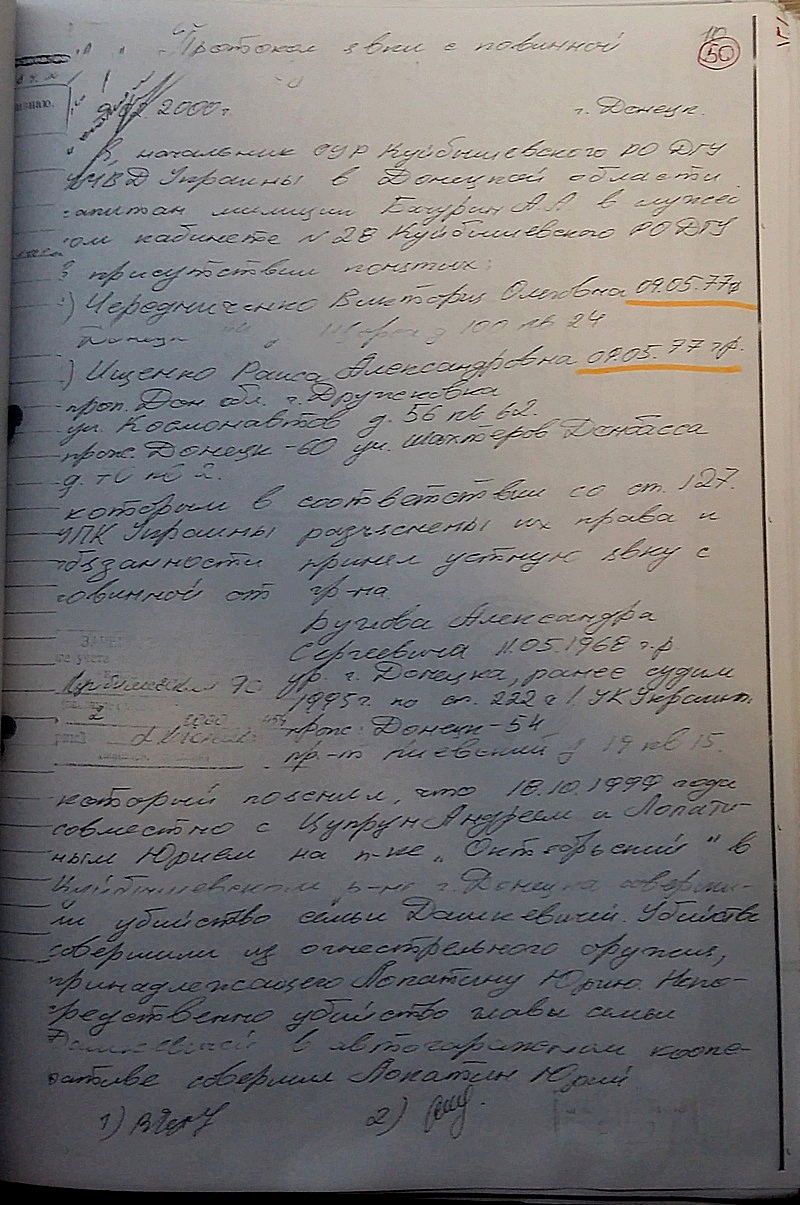 Протокол явки с повинной
50
2000г г. Донецк.
Я, начальник ОУР Куйбышевского РО ДГУ
УМВД Украины в Донецкой области
капитан милиции Бачурин А.А в служеб
ом кабинете N 28 Куйбышевского РО ДГУ
в присутствии понятых:
1) Чередниченко Виктория Олеговна 09.05.77г
Донецк д 100 кв 24
) Ищенко Раиса Александровна 09.05.77 гр.
проп. Дон обл. г. Дружковка
ул. Космонавтов д. 56 кв 62.
прож. Донецк-60 ул. Шахтеров Донбасса
д. кв 2.
которым в соответствии со ст. 127.
УПК Украины разъяснены их права и
обязанности принял устную явку с
повинной от гр-на
Александра
Сергеевича 11.05.1968 г.р
ур. г. Донецка, ранее судим
1995г. по ст. 222 ч 1. УК Украины.
прож: Донецк-54
пр-т Киевский д 19 кв 15.
который пояснил, что 18.10.1999 года
совместно с Цупрун Андреем и Лопати-
ным Юрием на п-ке „Октябрьский" в
Куйбышевском р-не г. Донецка соверши-
ли убийство семьи Дашкевичей. Убийство
совершили из огнестрельного оружия,
принадлежащего Лопатину Юрию. Непо-
редственно убийство главы семьи
Дашкевичей в автогаражном коопе-
ративе совершил Лопатин Юрий
1) 2)